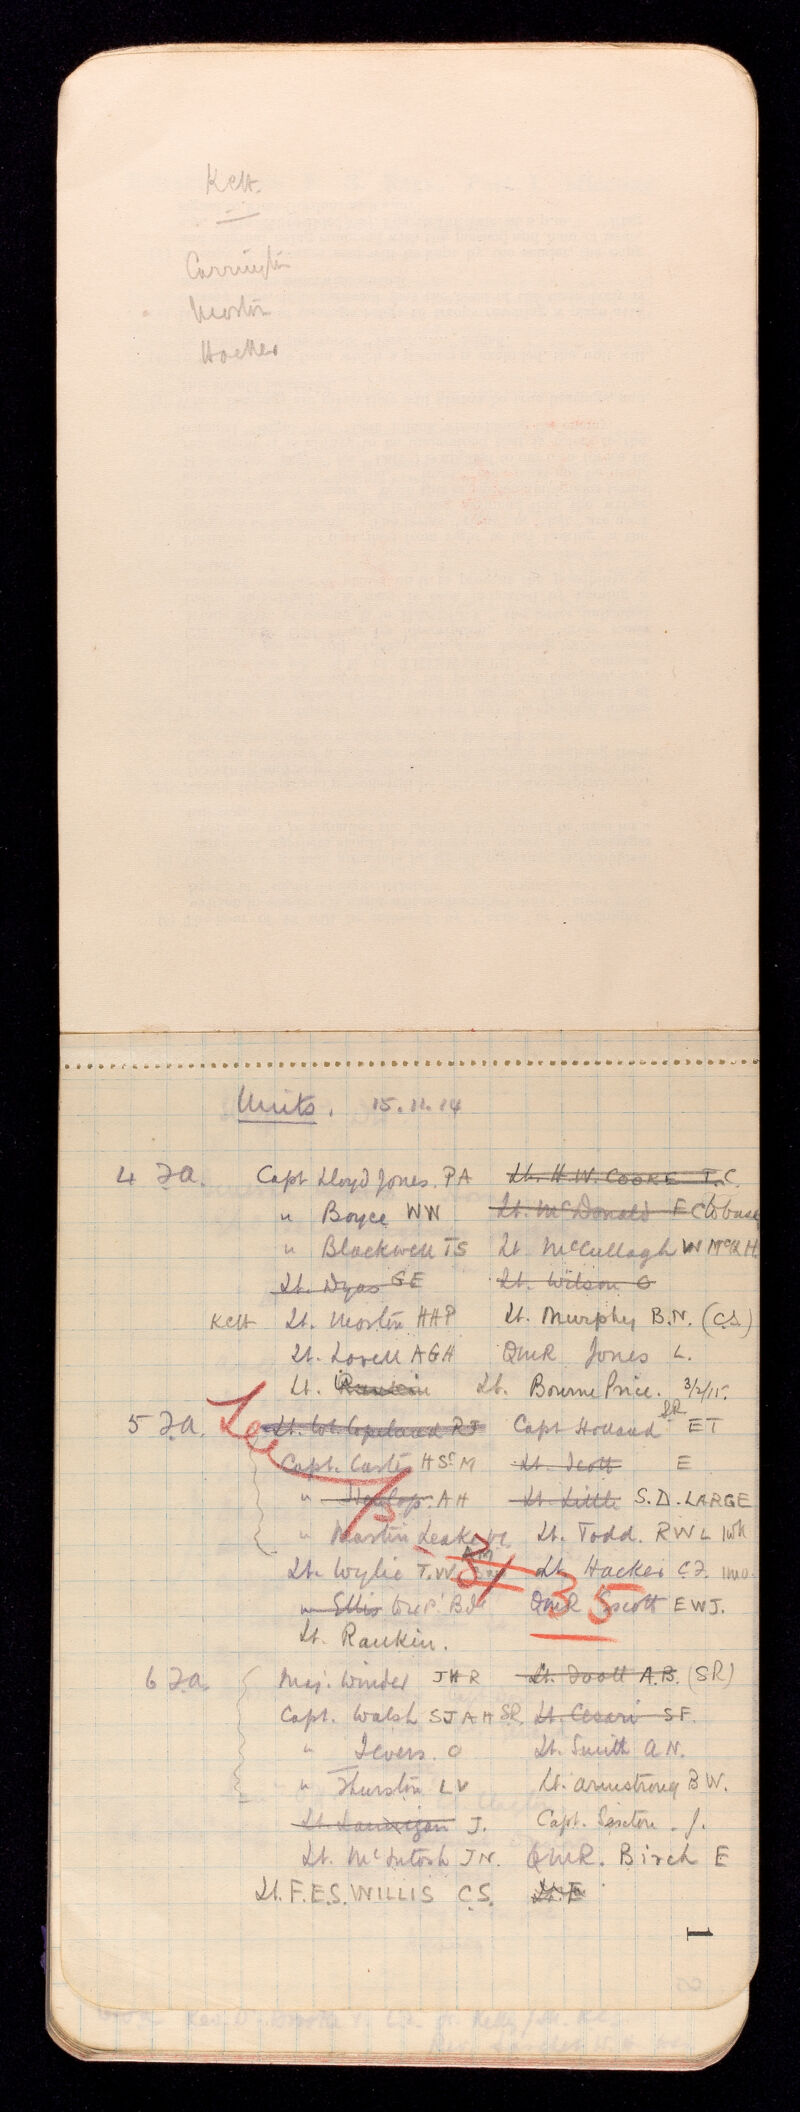 Kelt.
Carrington
Morton
Hacker
Units. 15.11.14
4 Fa. Capt Lloyd Jones. PA Lt. H.W. COOKE T.C.
" Boyce WW Lt. McDonald F C to base
" Blackwell TS Lt McCullagh W McK H.
Lt. Dyas GE Lt. Wilson O
Kelt Lt. Morton HHP Lt. Murphy B.N. (C.S.)
Lt. Lovell AGH QMR Jones L.
Lt. Rankin Lt. Bourne Price. 3/2/15.
5 Fa. Lt. Col. Copeland RJ Capt Holland SR ET
Capt. Carter H St M Lt. Scott E
" Dunlop. AH Lt. Little S.D. LARGE
" Martin Leake Lt. Todd. RWL
Lt. Wylie T.W. Lt Hacker C.F.
" Ellis QMR Scott EWJ.
35
Lt. Rankin.
6 Fa. Maj. Winder JHR Lt. A.B. (SR)
Capt. Walsh SJAH SR Lt. Cesari SF.
" Ievers. O Lt. Smith A N.
" Thurston LV Lt. Armstrong B W.
Lt. Lannigan J. Capt. Sexton. J.
Lt. McIntosh JN. QMR. Birch E
Lt. F.E.S. WILLIS C.S. Lt. F
1